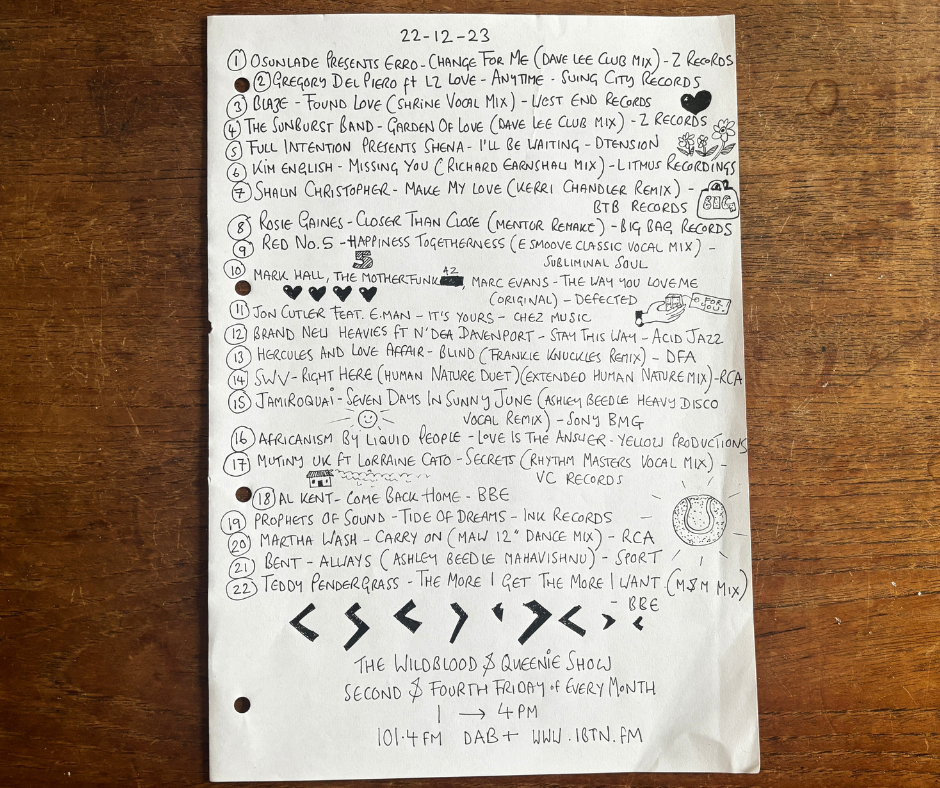 22-12-23
1 OSUNLADE PRESENTS ERRO - CHANGE FOR ME (DAVE LEE CLUB MIX) - Z RECORDS
2 GREGORY DEL PIERO ft LZ LOVE - ANYTIME - SWING CITY RECORDS
3 BLAZE - FOUND LOVE (SHRINE VOCAL MIX) - WEST END RECORDS
4 THE SUNBURST BAND - GARDEN OF LOVE (DAVE LEE CLUB MIX) - Z RECORDS
5 FULL INTENTION PRESENTS SHENA - I'LL BE WAITING - DTENSION
6 KIM ENGLISH - MISSING YOU (RICHARD EARNSHAW MIX) - LITMUS RECORDINGS
7 SHAWN CHRISTOPHER - MAKE MY LOVE (KERRI CHANDLER REMIX) -
BTB RECORDS
BAG
8 ROSIE GAINES - CLOSER THAN CLOSE (MENTOR REMAKE) - BIG BAG RECORDS
9 RED NO.5 - HAPPINESS TOGETHERNESS (E SMOOVE CLASSIC VOCAL MIX) -
5 SUBLIMINAL SOUL
10 MARK HALL, THE MOTHERFUNKAZ, MARC EVANS - THE WAY YOU LOVE ME
(ORIGINAL) - DEFECTED
FOR YOU.
11 JON CUTLER FEAT. E.MAN - IT'S YOURS - CHEZ MUSIC
12 BRAND NEW HEAVIES ft N'DEA DAVENPORT - STAY THIS WAY - ACID JAZZ
13 HERCULES AND LOVE AFFAIR - BLIND (FRANKIE KNUCKLES REMIX) - DFA
14 SWV - RIGHT HERE (HUMAN NATURE DUET) (EXTENDED HUMAN NATURE MIX) - RCA
15 JAMIROQUAI - SEVEN DAYS IN SUNNY JUNE (ASHLEY BEEDLE HEAVY DISCO
VOCAL REMIX) - SONY BMG
16 AFRICANISM BY LIQUID PEOPLE - LOVE IS THE ANSWER - YELLOW PRODUCTIONS
17 MUTINY UK ft LORRAINE CATO - SECRETS (RHYTHM MASTERS VOCAL MIX) -
VC RECORDS
18 AL KENT - COME BACK HOME - BBE
19 PROPHETS OF SOUND - TIDE OF DREAMS - INK RECORDS
20 MARTHA WASH - CARRY ON (MAW 12" DANCE MIX) - RCA
21 BENT - ALWAYS (ASHLEY BEEDLE MAHAVISHNU) - SPORT
22 TEDDY PENDERGRASS - THE MORE I GET THE MORE I WANT (M&M MIX)
- BBE
THE WILDBLOOD & QUEENIE SHOW
SECOND & FOURTH FRIDAY of EVERY MONTH
1 → 4 PM
101.4 FM DAB+ WWW.1BTN.FM